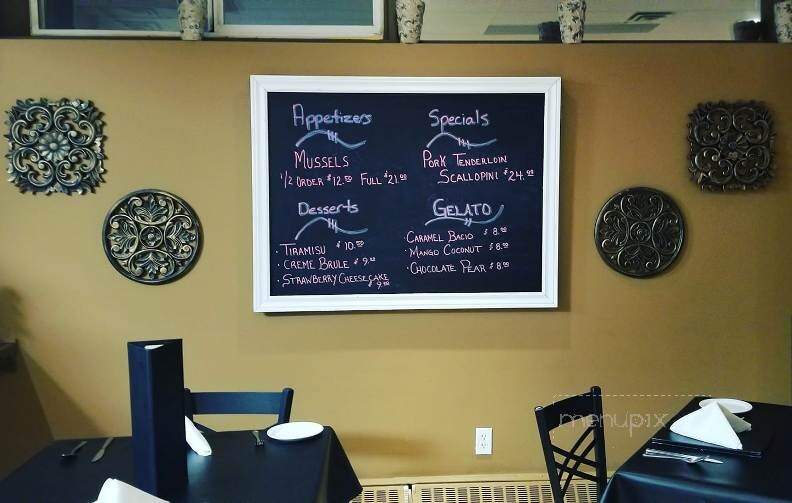 Appetizers
MUSSELS
1/2 ORDER $12.00 FULL $21.00
Desserts
· TIRAMISU $10.00
· CREME BRULE $9.00
· STRAWBERRY CHEESECAKE
9.00
Specials
PORK TENDERLOIN
SCALLOPINI $24.00
GELATO
· CARAMEL BACIO $8.00
· MANGO COCONUT $8.00
· CHOCOLATE PEAR $8.00
menupix